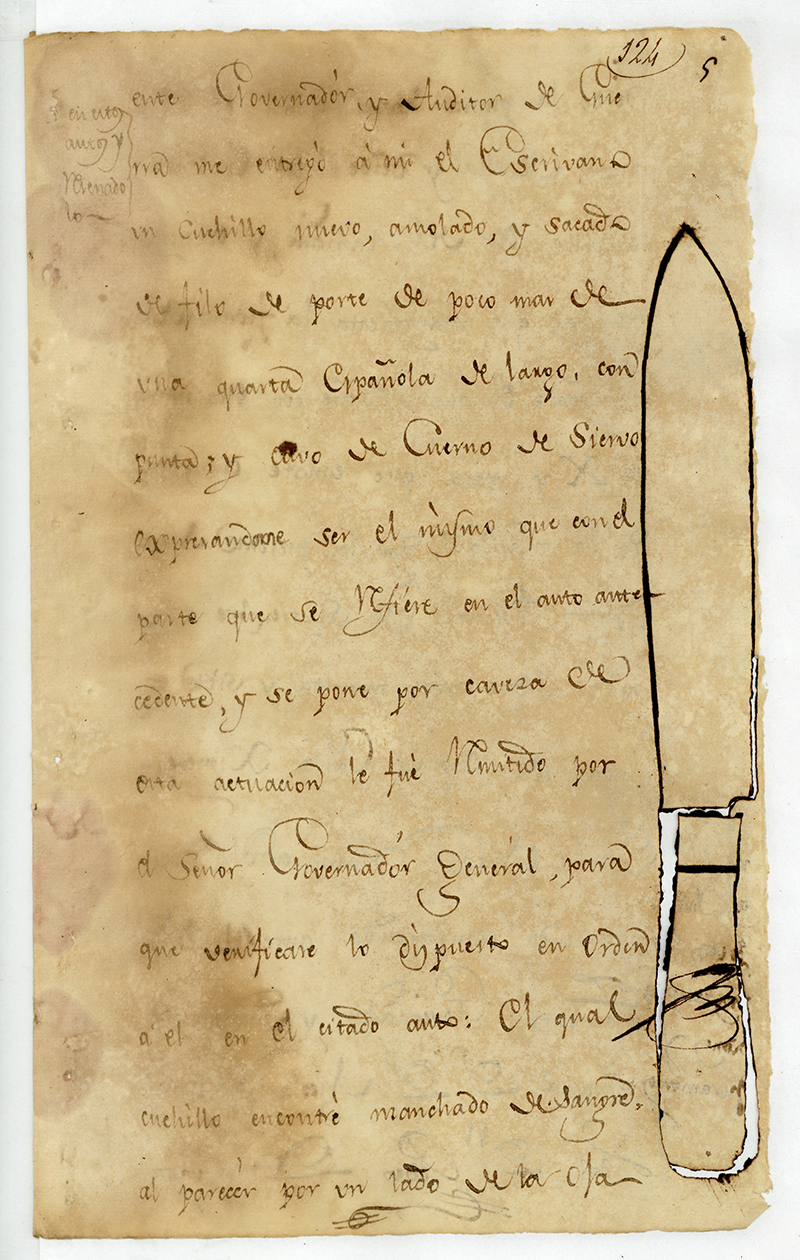 124
5
en esto
auto y
Menado
lo
ente Governador, y Auditor de Gue
rra me entregó á mi el Escrivano
un Cuchillo nuevo, amolado, y sacado
de filo de porte de poco mas de
una quarta Española de largo, con
punta; y cavo de Cuerno de Siervo
expresandome ser el mismo que con el
parte que se Refiere en el auto ante
cedente, y se pone por caveza de
esta actuacion le fué Remitido por
el Señor Governador General, para
que verificase lo dispuesto en Orden
á el en el citado auto: El qual
cuchillo encontré manchado de Sangre,
al parecer por un lado de la Oja